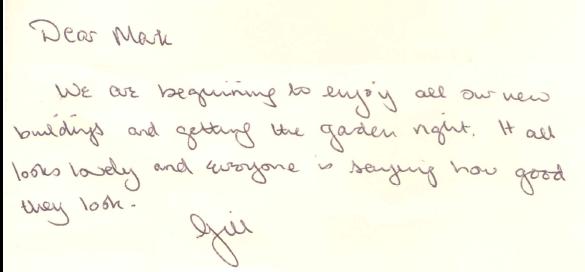 Dear Mark
We are beginning to enjoy all our new
buildings and getting the garden right. It all
looks lovely and everyone is saying how good
they look.
Gill